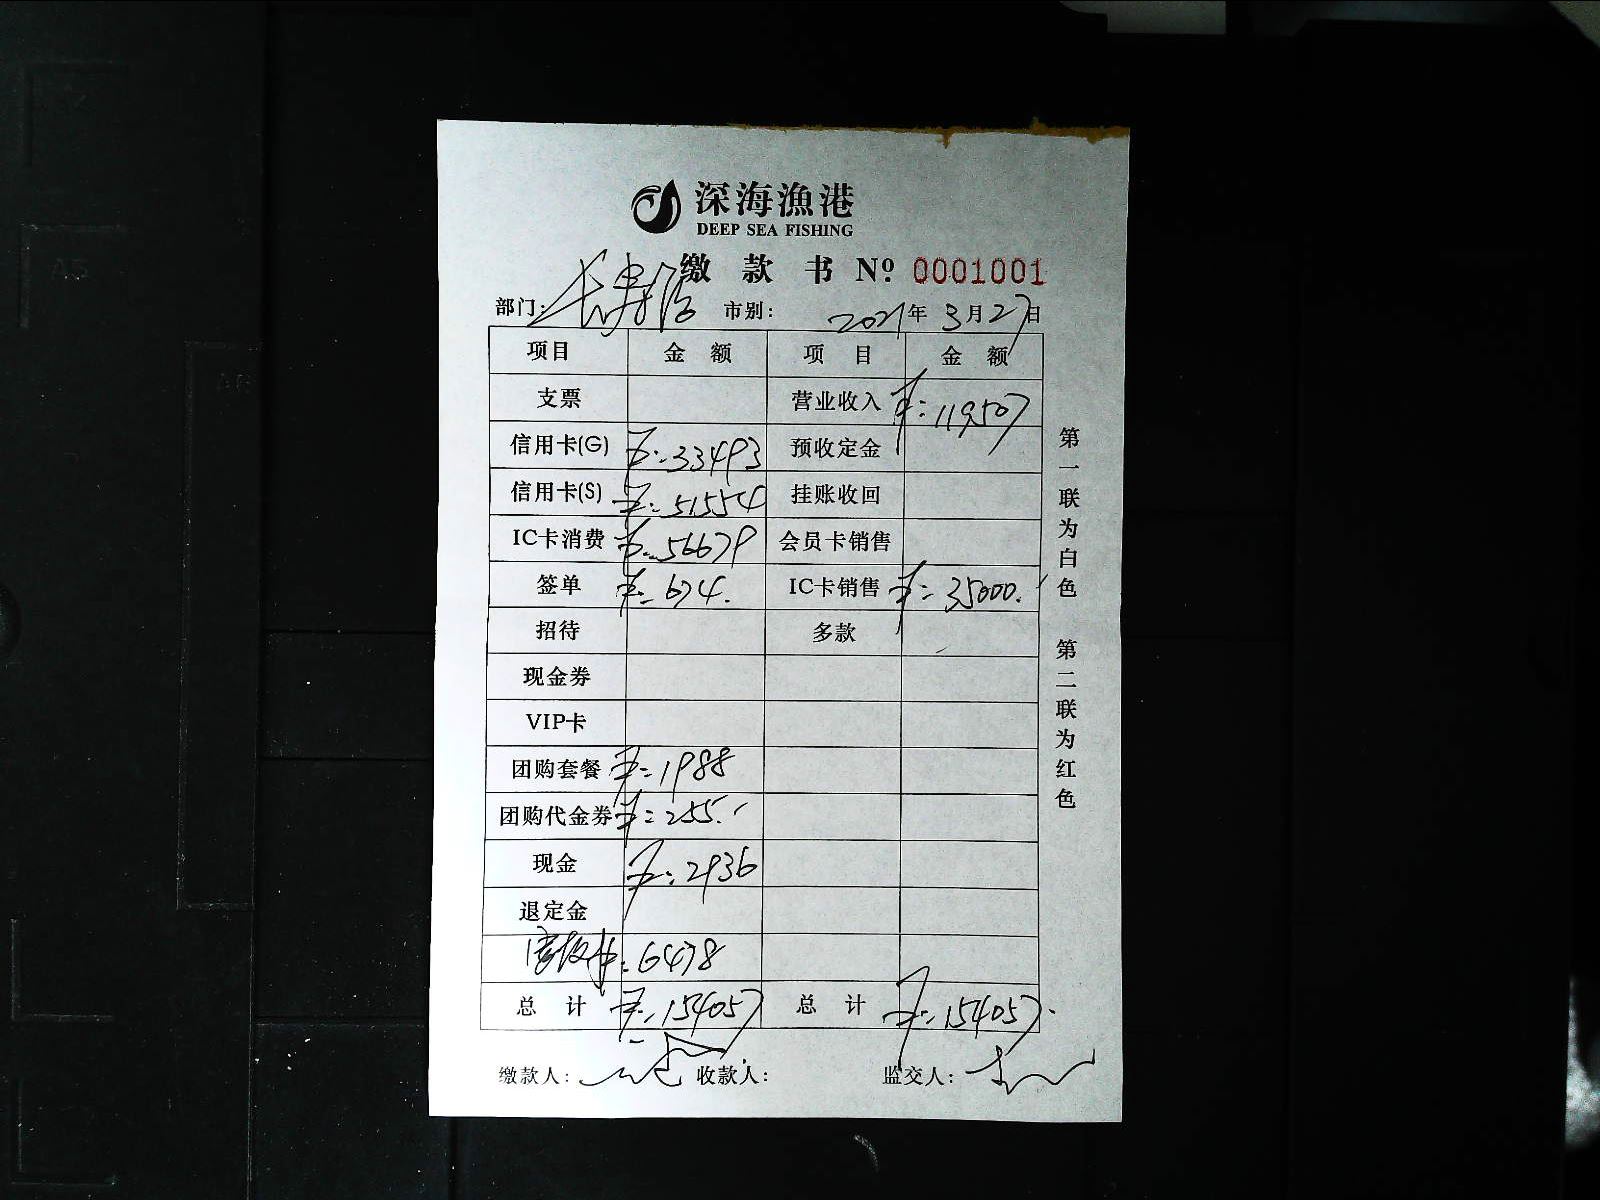 深海漁港
DEEP SEA FISHING
缴 款 书 Nº 0001001
部门: 长寿路 市别: 2021年3月27日
项目 金 额 项 目 金 额
支票 营业收入 ¥:119507
信用卡(G) ¥:33493 预收定金
信用卡(S) ¥:51554 挂账收回
IC卡消费 ¥:56679 会员卡销售
签单 ¥:674. IC卡销售 ¥:35000.
招待 多款
现金券
VIP卡
团购套餐 ¥:1988
团购代金券 ¥:255.
现金 ¥:2936
退定金
:6478
总 计 ¥:154057 总 计 ¥:154057.
缴款人: 收款人: 监交人:
第一联为白色 第二联为红色